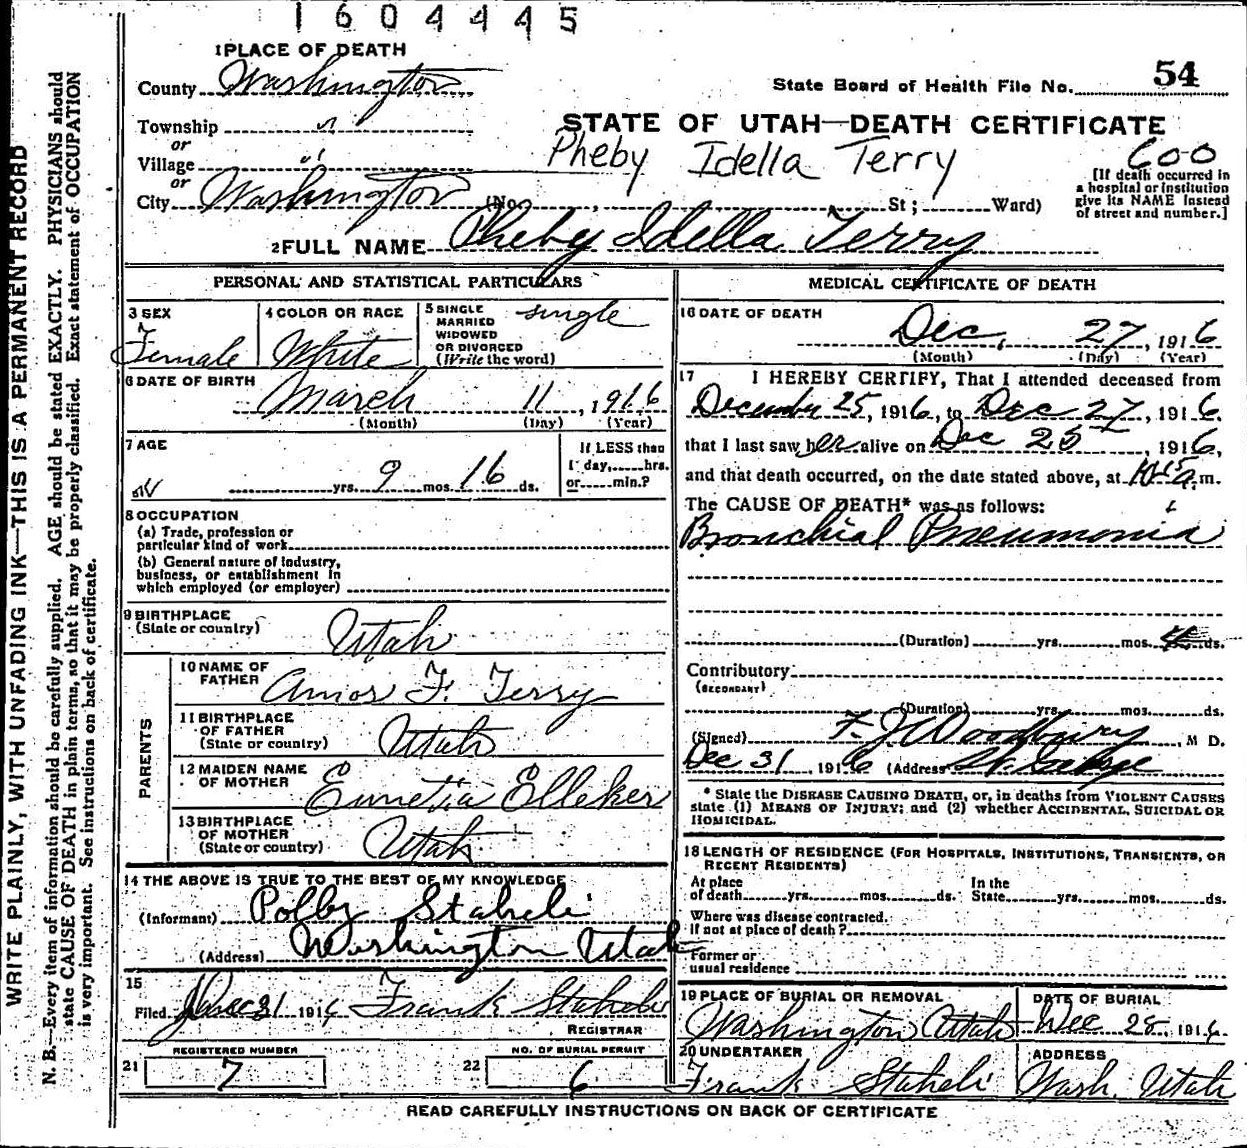 1604445
1 PLACE OF DEATH
County Washington
State Board of Health File No. 54
Township "
or
STATE OF UTAH—DEATH CERTIFICATE
Pheby Idella Terry
600
Village "
or
City Washington (No. , St ; Ward)
[If death occurred in
a hospital or institution
give its NAME instead
of street and number.]
2 FULL NAME Pheby Idella Terry
PERSONAL AND STATISTICAL PARTICULARS
3 SEX
Female
4 COLOR OR RACE
White
5 SINGLE
MARRIED
WIDOWED
OR DIVORCED
(Write the word)
single
6 DATE OF BIRTH
March 11, 1916
(Month) (Day) (Year)
7 AGE
yrs. 9 mos. 16 ds.
If LESS than
1 day, hrs.
or min.?
8 OCCUPATION
(a) Trade, profession or
particular kind of work
(b) General nature of industry,
business, or establishment in
which employed (or employer)
9 BIRTHPLACE
(State or country)
Utah
PARENTS
10 NAME OF
FATHER
Amos F. Terry
11 BIRTHPLACE
OF FATHER
(State or country)
Utah
12 MAIDEN NAME
OF MOTHER
Eunetia Elleker
13 BIRTHPLACE
OF MOTHER
(State or country)
Utah
14 THE ABOVE IS TRUE TO THE BEST OF MY KNOWLEDGE
(Informant) Polby Staheli
(Address) Washington Utah
15
Filed Dec 31 1916 Frank Staheli
REGISTRAR
REGISTERED NUMBER
21 7
NO. OF BURIAL PERMIT
22 6
MEDICAL CERTIFICATE OF DEATH
16 DATE OF DEATH
Dec, 27, 1916
(Month) (Day) (Year)
17 I HEREBY CERTIFY, That I attended deceased from
December 25, 1916, to Dec 27, 1916,
that I last saw her alive on Dec 25, 1916,
and that death occurred, on the date stated above, at a.m.
The CAUSE OF DEATH* was as follows:
Bronchial Pneumonia
(Duration) yrs. mos. ds.
Contributory
(SECONDARY)
(Duration) yrs. mos. ds.
(Signed) F. J. Woodbury, M D.
Dec 31, 1916 (Address St. George
* State the DISEASE CAUSING DEATH, or, in deaths from VIOLENT CAUSES
state (1) MEANS OF INJURY; and (2) whether ACCIDENTAL, SUICIDAL OR
HOMICIDAL.
18 LENGTH OF RESIDENCE (FOR HOSPITALS, INSTITUTIONS, TRANSIENTS, OR
RECENT RESIDENTS)
At place
of death yrs. mos. ds.
In the
State yrs. mos. ds.
Where was disease contracted.
If not at place of death?
Former or
usual residence
19 PLACE OF BURIAL OR REMOVAL
Washington Utah
DATE OF BURIAL
Dec 28, 1916
20 UNDERTAKER
Frank Staheli
ADDRESS
Wash. Utah
READ CAREFULLY INSTRUCTIONS ON BACK OF CERTIFICATE
WRITE PLAINLY, WITH UNFADING INK—THIS IS A PERMANENT RECORD
N. B.—Every item of information should be carefully supplied. AGE should be stated EXACTLY. PHYSICIANS should
state CAUSE OF DEATH in plain terms, so that it may be properly classified. Exact statement of OCCUPATION
is very important. See instructions on back of certificate.